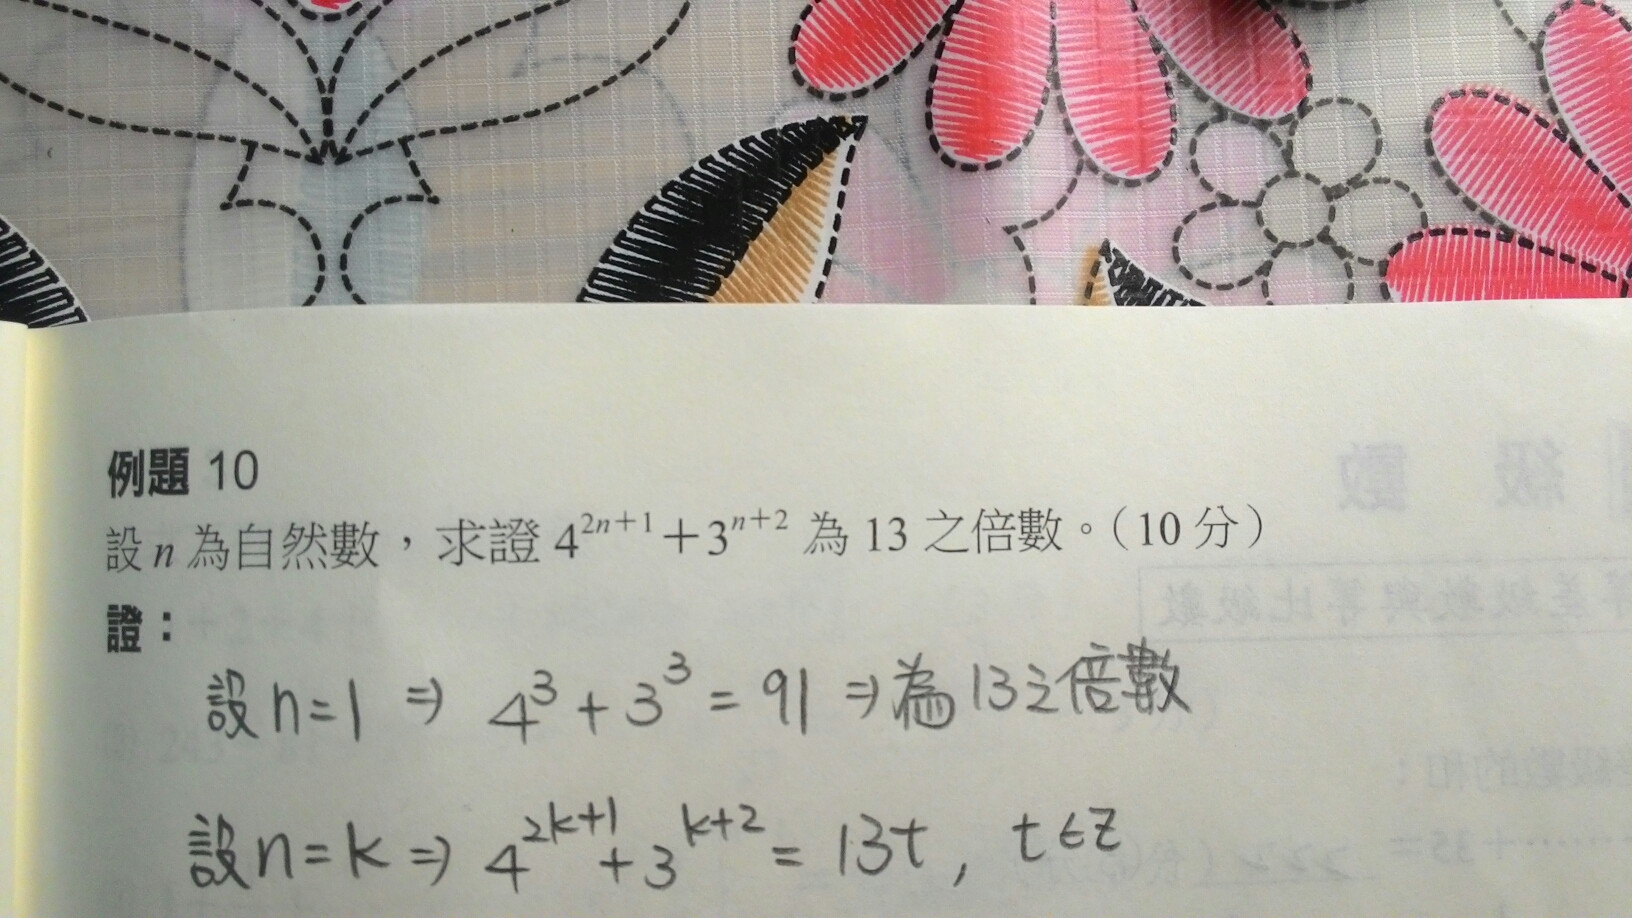 例題 10
設 n 為自然數，求證 4^{2n+1}+3^{n+2} 為 13 之倍數。（10 分）
證：
設 n=1 ⇒ 4^3+3^3=91 ⇒ 為 13 之倍數
設 n=k ⇒ 4^{2k+1}+3^{k+2}=13t, t∈Z